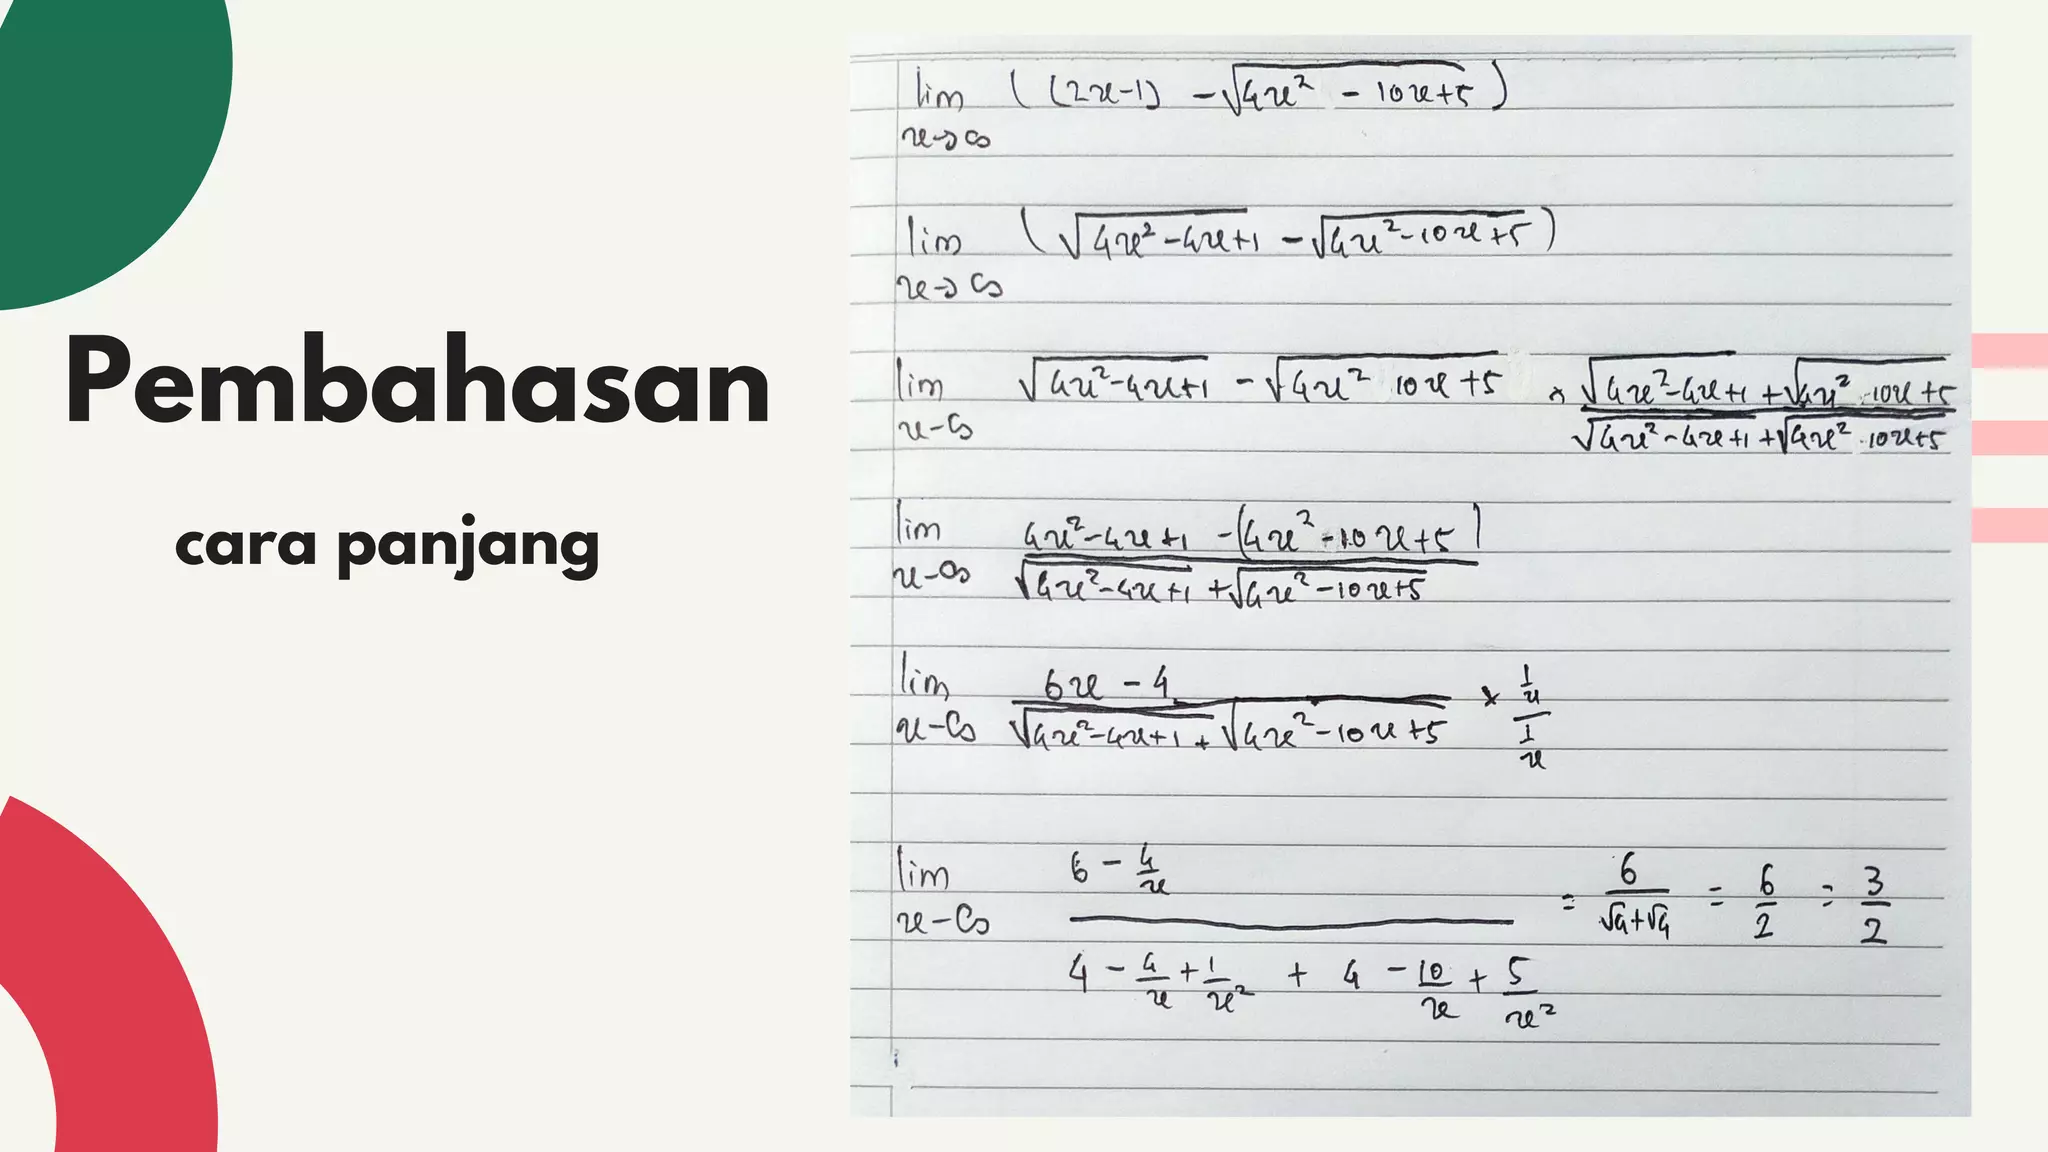 Pembahasan
cara panjang
lim ( (2x-1) - √4x² - 10x+5 )
x→∞
lim ( √4x²-4x+1 - √4x²-10x+5 )
x→∞
lim √4x²-4x+1 - √4x² 10x+5 × √4x²-4x+1 + √4x² -10x+5
x-∞ √4x²-4x+1 + √4x² -10x+5
lim 4x²-4x+1 -(4x²-10x+5)
x-∞ √4x²-4x+1 + √4x²-10x+5
lim 6x - 4 × 1/x
x-∞ √4x²-4x+1 + √4x²-10x+5 1/x
lim 6 - 4/x = 6/√4+√4 = 6/2 = 3/2
x-∞
4 - 4/x + 1/x² + 4 - 10/x + 5/x²